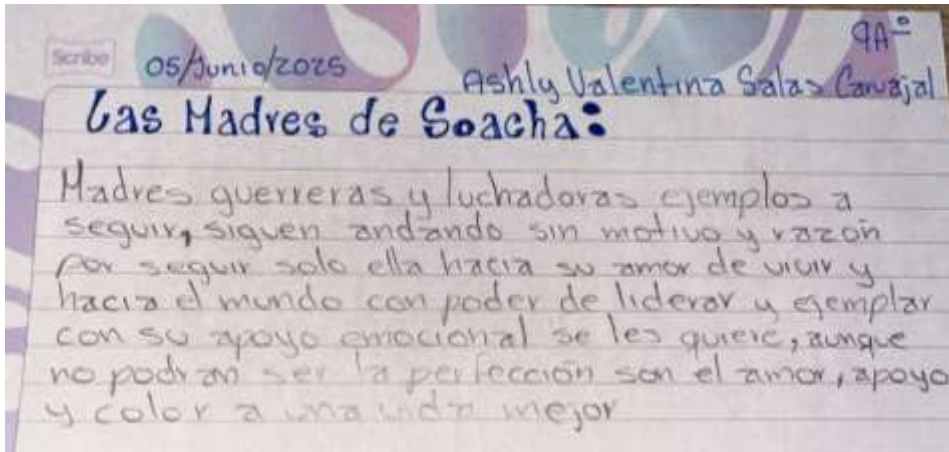 9A°
Scribe
05/Junio/2025
Ashly Valentina Salas Carvajal
Las Madres de Soacha:
Madres guerreras y luchadoras ejemplos a
seguir, siguen andando sin motivo y razón
por seguir solo ella hacia su amor de vivir y
hacia el mundo con poder de liderar y ejemplar
con su apoyo emocional se les quiere, aunque
no podran ser la perfección son el amor, apoyo
y color a una vida mejor